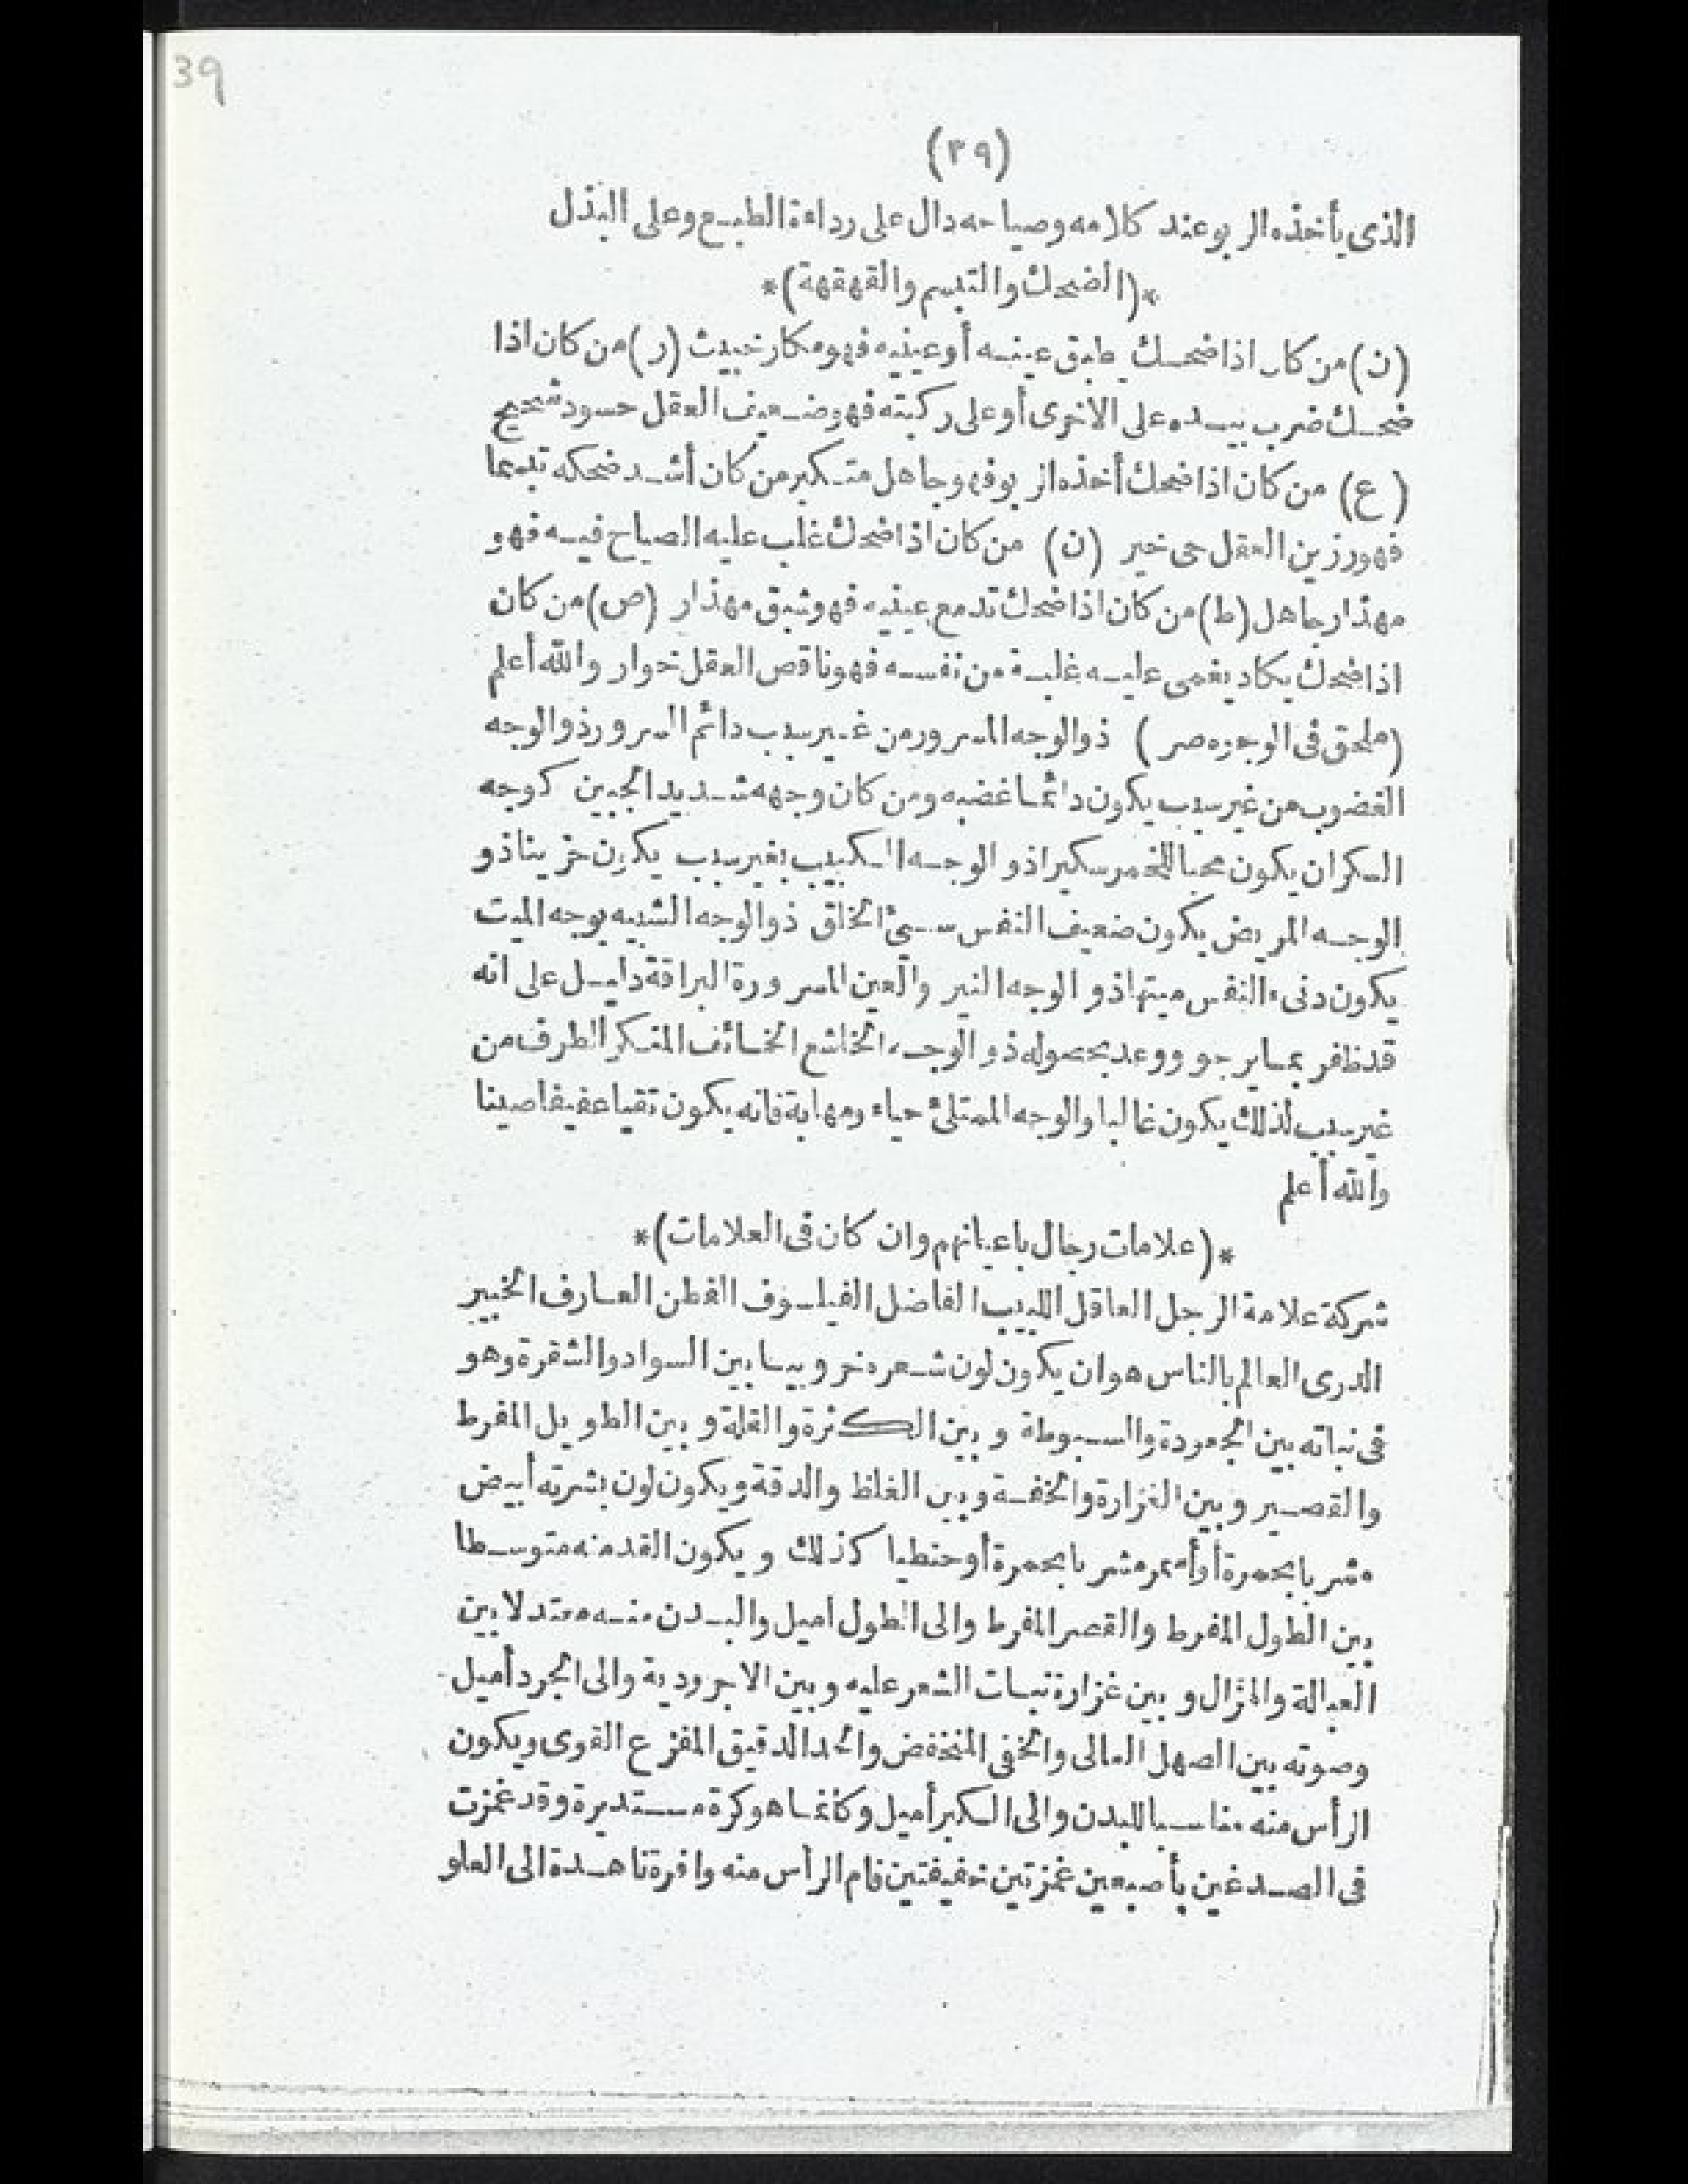 39
(٣٩)
الذى يأخذه الربو عند كلامه وصياحه دال على رداءة الطبع وعلى البذل
*(الضحك والتبسم والقهقهة)*
(ن) من كان اذا ضحك طبق عينه أو عينيه فهو مكار خبيث (ر) من كان اذا
ضحك ضرب بيده على الاخرى أو على ركبته فهو ضعيف العقل حسود شحيح
(ع) من كان اذا ضحك أخذه الربو فهو جاهل متكبر من كان أشد ضحكه تبسما
فهو رزين العقل حى خير (ن) من كان اذا ضحك غلب عليه الصياح فيه فهو
مهذار جاهل (ط) من كان اذا ضحك تدمع عينيه فهو شبق مهذار (ص) من كان
اذا ضحك يكاد يغمى عليه غلبة من نفسه فهو ناقص العقل خوار والله أعلم
(ملحق فى الوجوه صر) ذو الوجه المسرور من غير سبب دائم السرور ذو الوجه
الغضوب من غير سبب يكون دائما غضبه ومن كان وجهه شديد الجبين كوجه
السكران يكون محبا للخمر سكيرا ذو الوجه الكئيب بغير سبب يكون حزينا ذو
الوجه المريض يكون ضعيف النفس سيئ الخلق ذو الوجه الشبيه بوجه الميت
يكون دنىء النفس ميتها ذو الوجه النير والعين المسرورة البراقة دليل على انه
قد ظفر بما يرجو ووعد بحصوله ذو الوجه الخاشع الخائف المنكر الطرف من
غير سبب لذلك يكون غالبا والوجه الممتلئ حياء ومهابة فانه يكون تقيا عفيفا صينا
والله أعلم
*(علامات رجال باعيانهم وان كان فى العلامات)*
شركة علامة الرجل العاقل اللبيب الفاضل الفيلسوف الفطن العارف الخبير
الدرى العالم بالناس هو ان يكون لون شعره خروبيا بين السواد والشقرة وهو
فى نباته بين الجعودة والسبوطة وبين الكثرة والقلة وبين الطويل المفرط
والقصير وبين الغزارة والخفة وبين الغلظ والدقة ويكون لون بشرته أبيض
مشربا بحمرة أو أسمر مشربا بحمرة أو حنطيا كذلك ويكون القد منه متوسطا
بين الطول المفرط والقصر المفرط والى الطول اميل والبدن منه معتدلا بين
العبالة والهزال وبين غزارة نبات الشعر عليه وبين الاجرودية والى الجرد أميل
وصوته بين الصهل العالى والخفى المنخفض والحد الدقيق المفزع القوى ويكون
الرأس منه مناسبا للبدن والى الكبر أميل وكانما هو كرة مستديرة وقد غمزت
فى الصدغين بأصبعين غمزتين خفيفتين فام الرأس منه وافرة ناهدة الى العلو